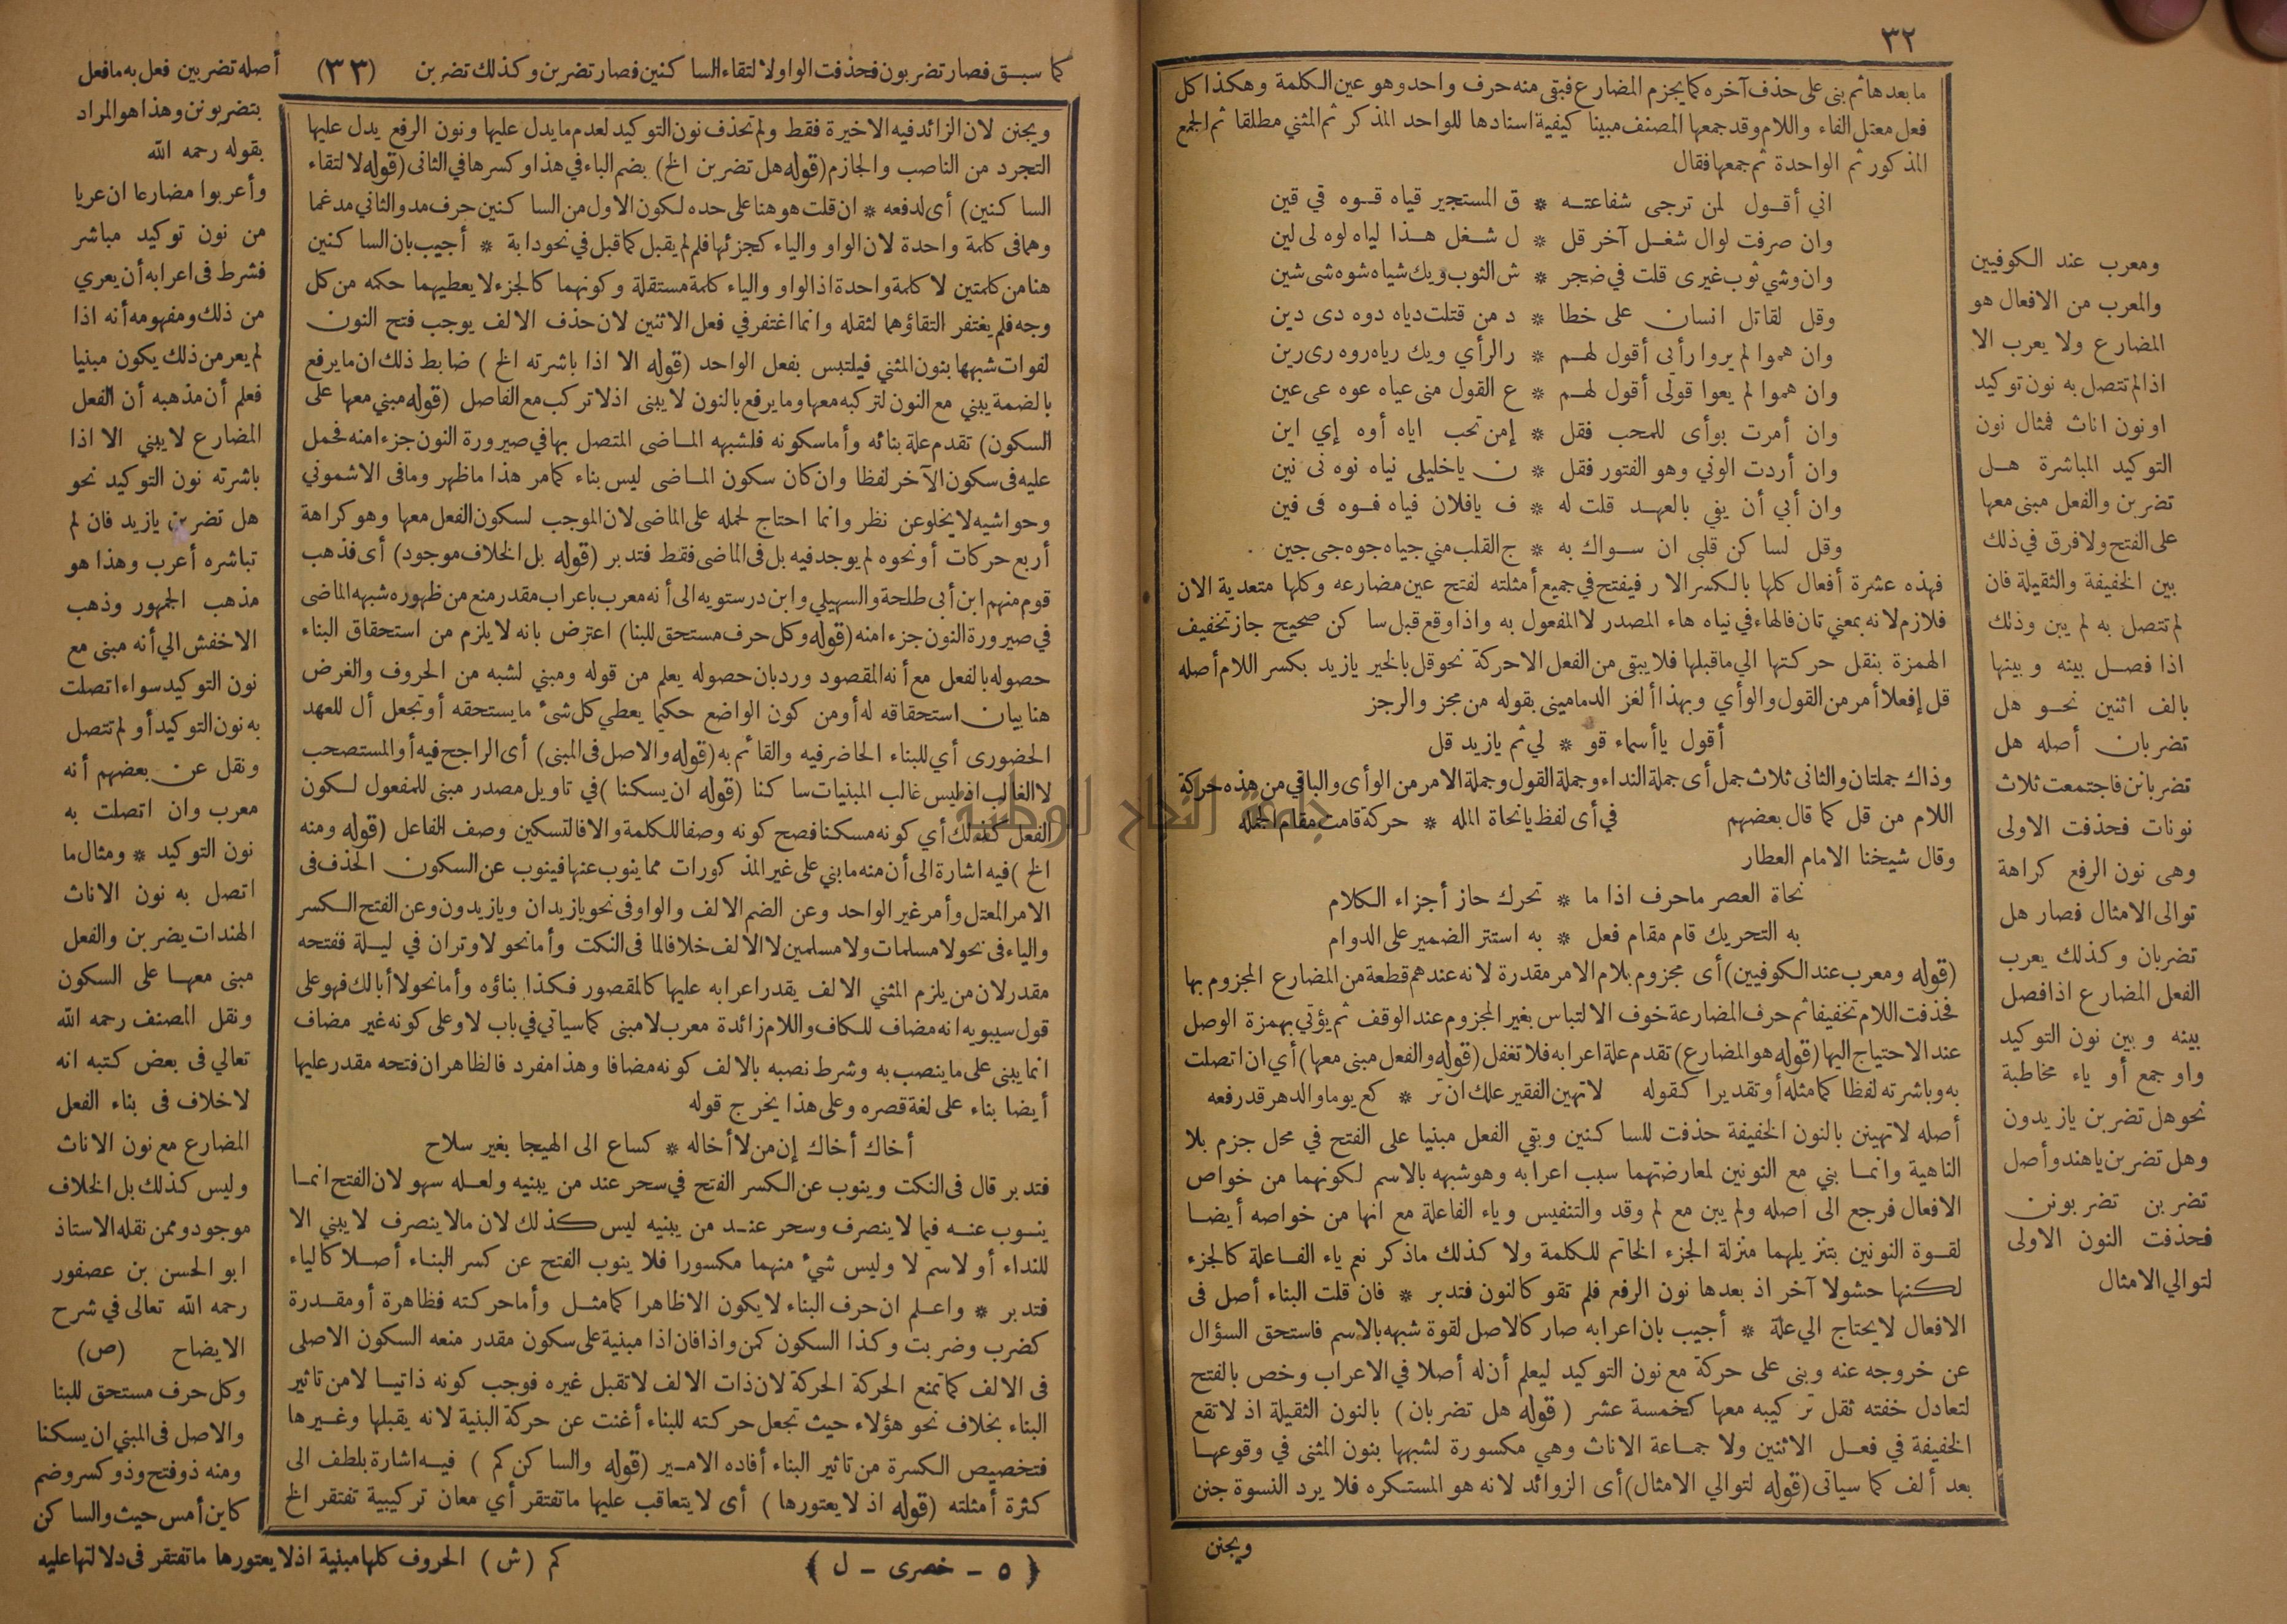 ٣٢
ما بعدها ثم بنى على حذف آخره كما يجزم المضارع فبقى منه حرف واحد وهو عين الكلمة وهكذا كل
فعل معتل الفاء واللام وقد جمعها المصنف مبينا كيفية اسنادها للواحد المذكر ثم المثني مطلقا ثم الجمع
المذكور ثم الواحدة ثم جمعها فقال
اني أقول لمن ترجى شفاعته * ق المستجير قياه قوه قي قين
وان صرفت لوال شغل آخر قل * ل شغل هذا لياه لوه لى لين
وان وشي ثوب غيرى قلت في ضجر * ش الثوب ويك شياه شوه شى شين
وقل لقاتل انسان على خطا * د من قتلت دياه دوه دى دين
وان همو لم يروا رأيي أقول لهم * ر الرأي ويك رياه روه رى رين
وان همو لم يعوا قولى أقول لهم * ع القول منى عياه عوه عى عين
وان أمرت بوأى للمحب فقل * إمن تحب اياه أوه إي اين
وان أردت الوني وهو الفتور فقل * ن ياخليلى نياه نوه نى نين
وان أبي أن يفي بالعهد قلت له * ف يافلان فياه فوه فى فين
وقل لساكن قلبى ان سواك به * ج القلب مني جياه جوه جى جين
فهذه عشرة أفعال كلها بالكسر الا ر فيفتح في جميع أمثلته لفتح عين مضارعه وكلها متعدية الا ن
فلازم لانه بمعني تان فالهاء في نياه هاء المصدر لا المفعول به واذا وقع قبل ساكن صحيح جاز تخفيف
الهمزة بنقل حركتها الي ما قبلها فلا يبقى من الفعل الا حركة نحو قل بالخير يازيد بكسر اللام أصله
قل إفعلا أمر من القول والوأي وبهذا ألغز الدمامينى بقوله من مجزو الرجز
أقول يا أسماء قو * لي ثم يازيد قل
وذاك جملتان والثانى ثلاث جمل أى جملة النداء وجملة القول وجملة الامر من الوأى والباقي من هذه حركة
اللام من قل كما قال بعضهم في أى لفظ يانحاة المله * حركة قامت مقام الجمله
وقال شيخنا الامام العطار
نحاة العصر ما حرف اذا ما * تحرك حاز أجزاء الكلام
به التحريك قام مقام فعل * به استتر الضمير على الدوام
(قوله ومعرب عند الكوفيين) أى مجزوم بلام الامر مقدرة لانه عندهم قطعة من المضارع المجزوم بها
فحذفت اللام تخفيفا ثم حرف المضارعة خوف الالتباس بغير المجزوم عند الوقف ثم يؤتي بهمزة الوصل
عند الاحتياج اليها (قوله هو المضارع) تقدم علة اعرابه فلا تغفل (قوله والفعل مبنى معها) أي ان اتصلت
به وباشرته لفظا كما مثله أو تقديرا كقوله لا تهين الفقير علك ان تر * كع يوما والدهر قد رفعه
أصله لا تهينن بالنون الخفيفة حذفت للساكنين وبقي الفعل مبنيا على الفتح في محل جزم بلا
الناهية وانما بني مع النونين لمعارضتهما سبب اعرابه وهو شبهه بالاسم لكونهما من خواص
الافعال فرجع الى أصله ولم يبن مع لم وقد والتنفيس وياء الفاعلة مع انها من خواصه أيضا
لقوة النونين بتنزيلهما منزلة الجزء الخاتم للكلمة ولا كذلك ماذكر نعم ياء الفاعلة كالجزء
لكنها حشو لا آخر اذ بعدها نون الرفع فلم تقو كالنون فتدبر * فان قلت البناء أصل فى
الافعال لا يحتاج الي علة * أجيب بان اعرابه صار كالاصل لقوة شبهه بالاسم فاستحق السؤال
عن خروجه عنه وبنى على حركة مع نون التوكيد ليعلم أن له أصلا في الاعراب وخص بالفتح
لتعادل خفته ثقل تركيبه معها كخمسة عشر (قوله هل تضربان) بالنون الثقيلة اذ لا تقع
الخفيفة في فعل الاثنين ولا جماعة الاناث وهي مكسورة لشبهها بنون المثنى في وقوعها
بعد ألف كما سياتى (قوله لتوالي الامثال) أى الزوائد لانه هو المستكره فلا يرد النسوة جنن
ويجنن
ومعرب عند الكوفيين
والمعرب من الافعال هو
المضارع ولا يعرب الا
اذا لم تتصل به نون توكيد
او نون اناث فمثال نون
التوكيد المباشرة هل
تضربن والفعل مبنى معها
على الفتح ولا فرق في ذلك
بين الخفيفة والثقيلة فان
لم تتصل به لم يبن وذلك
اذا فصل بينه وبينها
بالف اثنين نحو هل
تضربان أصله هل
تضربانن فاجتمعت ثلاث
نونات فحذفت الاولى
وهى نون الرفع كراهة
توالى الامثال فصار هل
تضربان وكذلك يعرب
الفعل المضارع اذا فصل
بينه وبين نون التوكيد
واو جمع أو ياء مخاطبة
نحو هل تضربن يازيدون
وهل تضربن ياهند وأصل
تضربن تضربونن
فحذفت النون الاولى
لتوالي الامثال
كما سبق فصار تضربون فحذفت الواو لالتقاء الساكنين فصار تضربن وكذلك تضربن (٣٣) أصله تضربين فعل به ما فعل
ويجنن لان الزائد فيه الاخيرة فقط ولم تحذف نون التوكيد لعدم ما يدل عليها ونون الرفع يدل عليها
التجرد من الناصب والجازم (قوله هل تضربن الخ) بضم الباء في هذا وكسرها في الثانى (قوله لالتقاء
الساكنين) أى لدفعه * ان قلت هو هنا على حده لكون الاول من الساكنين حرف مد والثاني مدغما
وهما فى كلمة واحدة لان الواو والياء كجزئها فلم لم يقبل كما قبل في نحو دابة * أجيب بان الساكنين
هنا من كلمتين لا كلمة واحدة اذ الواو والياء كلمة مستقلة وكونهما كالجزء لا يعطيهما حكمه من كل
وجه فلم يغتفر التقاؤهما لثقله وانما اغتفر في فعل الاثنين لان حذف الالف يوجب فتح النون
لفوات شبهها بنون المثني فيلتبس بفعل الواحد (قوله الا اذا باشرته الخ) ضابط ذلك ان ما يرفع
بالضمة يبني مع النون لتركبه معها وما يرفع بالنون لا يبنى اذ لا تركب مع الفاصل (قوله مبني معها على
السكون) تقدم علة بنائه وأما سكونه فلشبهه الماضى المتصل بها في صيرورة النون جزءا منه فحمل
عليه فى سكون الآخر لفظا وان كان سكون الماضى ليس بناء كما مر هذا ما ظهر وما فى الاشموني
وحواشيه لا يخلو عن نظر وانما احتاج لحمله على الماضى لان الموجب لسكون الفعل معها وهو كراهة
أربع حركات أو نحوه لم يوجد فيه بل فى الماضى فقط فتدبر (قوله بل الخلاف موجود) أى فذهب
قوم منهم ابن أبى طلحة والسهيلي وابن درستويه الى أنه معرب باعراب مقدر منع من ظهوره شبهه الماضى
في صيرورة النون جزءا منه (قوله وكل حرف مستحق للبنا) اعترض بانه لا يلزم من استحقاق البناء
حصوله بالفعل مع أنه المقصود ورد بان حصوله يعلم من قوله ومبني لشبه من الحروف والغرض
هنا بيان استحقاقه له أو من كون الواضع حكيما يعطي كل شئ ما يستحقه أو تجعل أل للعهد
الحضورى أي للبناء الحاضر فيه والقائم به (قوله والاصل فى المبنى) أى الراجح فيه أو المستصحب
لا الغالب اذ ليس غالب المبنيات ساكنا (قوله ان يسكنا) في تاويل مصدر مبنى للمفعول لكون
الفعل كذلك أي كونه مسكنا فصح كونه وصفا للكلمة والا فالتسكين وصف الفاعل (قوله ومنه
الخ) فيه اشارة الى أن منه ما بني على غير المذكورات مما ينوب عنها فينوب عن السكون الحذف فى
الامر المعتل وأمر غير الواحد وعن الضم الالف والواو فى نحو يازيدان ويازيدون وعن الفتح الكسر
والياء فى نحو لا مسلمات ولا مسلمين لا الالف خلافا لما فى النكت وأما نحو لا وتران في ليلة ففتحه
مقدر لان من يلزم المثني الالف يقدر اعرابه عليها كالمقصور فكذا بناؤه وأما نحو لا أبالك فهو على
قول سيبويه انه مضاف للكاف واللام زائدة معرب لا مبنى كما سياتي في باب لا وعلى كونه غير مضاف
انما يبنى على ما ينصب به وشرط نصبه بالالف كونه مضافا وهذا مفرد فالظاهر ان فتحه مقدر عليها
أيضا بناء على لغة قصره وعلى هذا يخرج قوله
أخاك أخاك إن من لا أخاله * كساع الى الهيجا بغير سلاح
فتدبر قال فى النكت وينوب عن الكسر الفتح في سحر عند من يبنيه ولعله سهو لان الفتح انما
ينوب عنه فيما لا ينصرف وسحر عند من يبنيه ليس كذلك لان ما لا ينصرف لا يبني الا
للنداء أو لاسم لا وليس شئ منهما مكسورا فلا ينوب الفتح عن كسر البناء أصلا كالياء
فتدبر * واعلم ان حرف البناء لا يكون الا ظاهرا كما مثل وأما حركته فظاهرة أو مقدرة
كضرب وضربت وكذا السكون كمن واذا فان اذا مبنية على سكون مقدر منعه السكون الاصلى
فى الالف كما تمنع الحركة الحركة لان ذات الالف لا تقبل غيره فوجب كونه ذاتيا لا من تاثير
البناء بخلاف نحو هؤلاء حيث تجعل حركته للبناء أغنت عن حركة البنية لانه يقبلها وغيرها
فتخصيص الكسرة من تاثير البناء أفاده الامير (قوله والساكن كم) فيه اشارة بلطف الى
كثرة أمثلته (قوله اذ لا يعتورها) أى لا يتعاقب عليها ما تفتقر أي معان تركيبية تفتقر الخ
بتضربونن وهذا هو المراد
بقوله رحمه الله
وأعربوا مضارعا ان عريا
من نون توكيد مباشر
فشرط فى اعرابه أن يعري
من ذلك ومفهومه أنه اذا
لم يعر من ذلك يكون مبنيا
فعلم أن مذهبه أن الفعل
المضارع لا يبني الا اذا
باشرته نون التوكيد نحو
هل تضربن يازيد فان لم
تباشره أعرب وهذا هو
مذهب الجمهور وذهب
الاخفش الي أنه مبنى مع
نون التوكيد سواء اتصلت
به نون التوكيد أو لم تتصل
ونقل عن بعضهم أنه
معرب وان اتصلت به
نون التوكيد * ومثال ما
اتصل به نون الاناث
الهندات يضربن والفعل
مبنى معها على السكون
ونقل المصنف رحمه الله
تعالي فى بعض كتبه انه
لا خلاف فى بناء الفعل
المضارع مع نون الاناث
وليس كذلك بل الخلاف
موجود وممن نقله الاستاذ
ابو الحسن بن عصفور
رحمه الله تعالى في شرح
الايضاح (ص)
وكل حرف مستحق للبنا
والاصل فى المبني ان يسكنا
ومنه ذو فتح وذو كسر وضم
كاين أمس حيث والساكن
كم (ش) الحروف كلها مبنية اذ لا يعتورها ما تفتقر فى دلالتها عليه
(٥ - خضرى - ل)
جامعة النجاح الوطنية